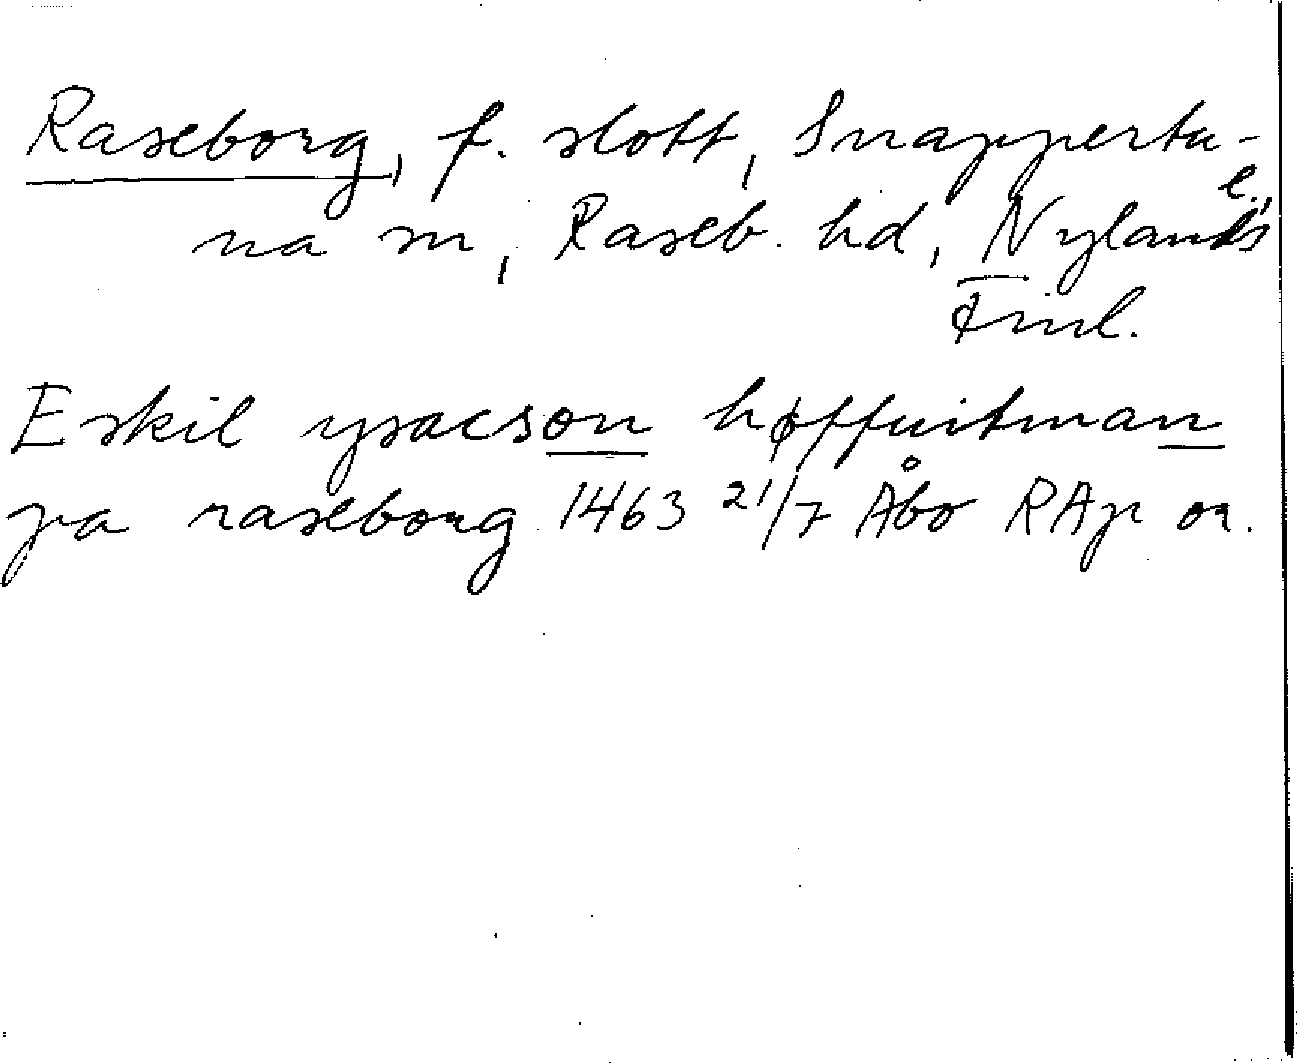 Raseborg, f. slott, Snappertu-
na sn, Raseb. hd, Nylands
Finl.
Eskil ysacson høffuitman
pa raseborg 1463 21/7 Åbo RAp or.